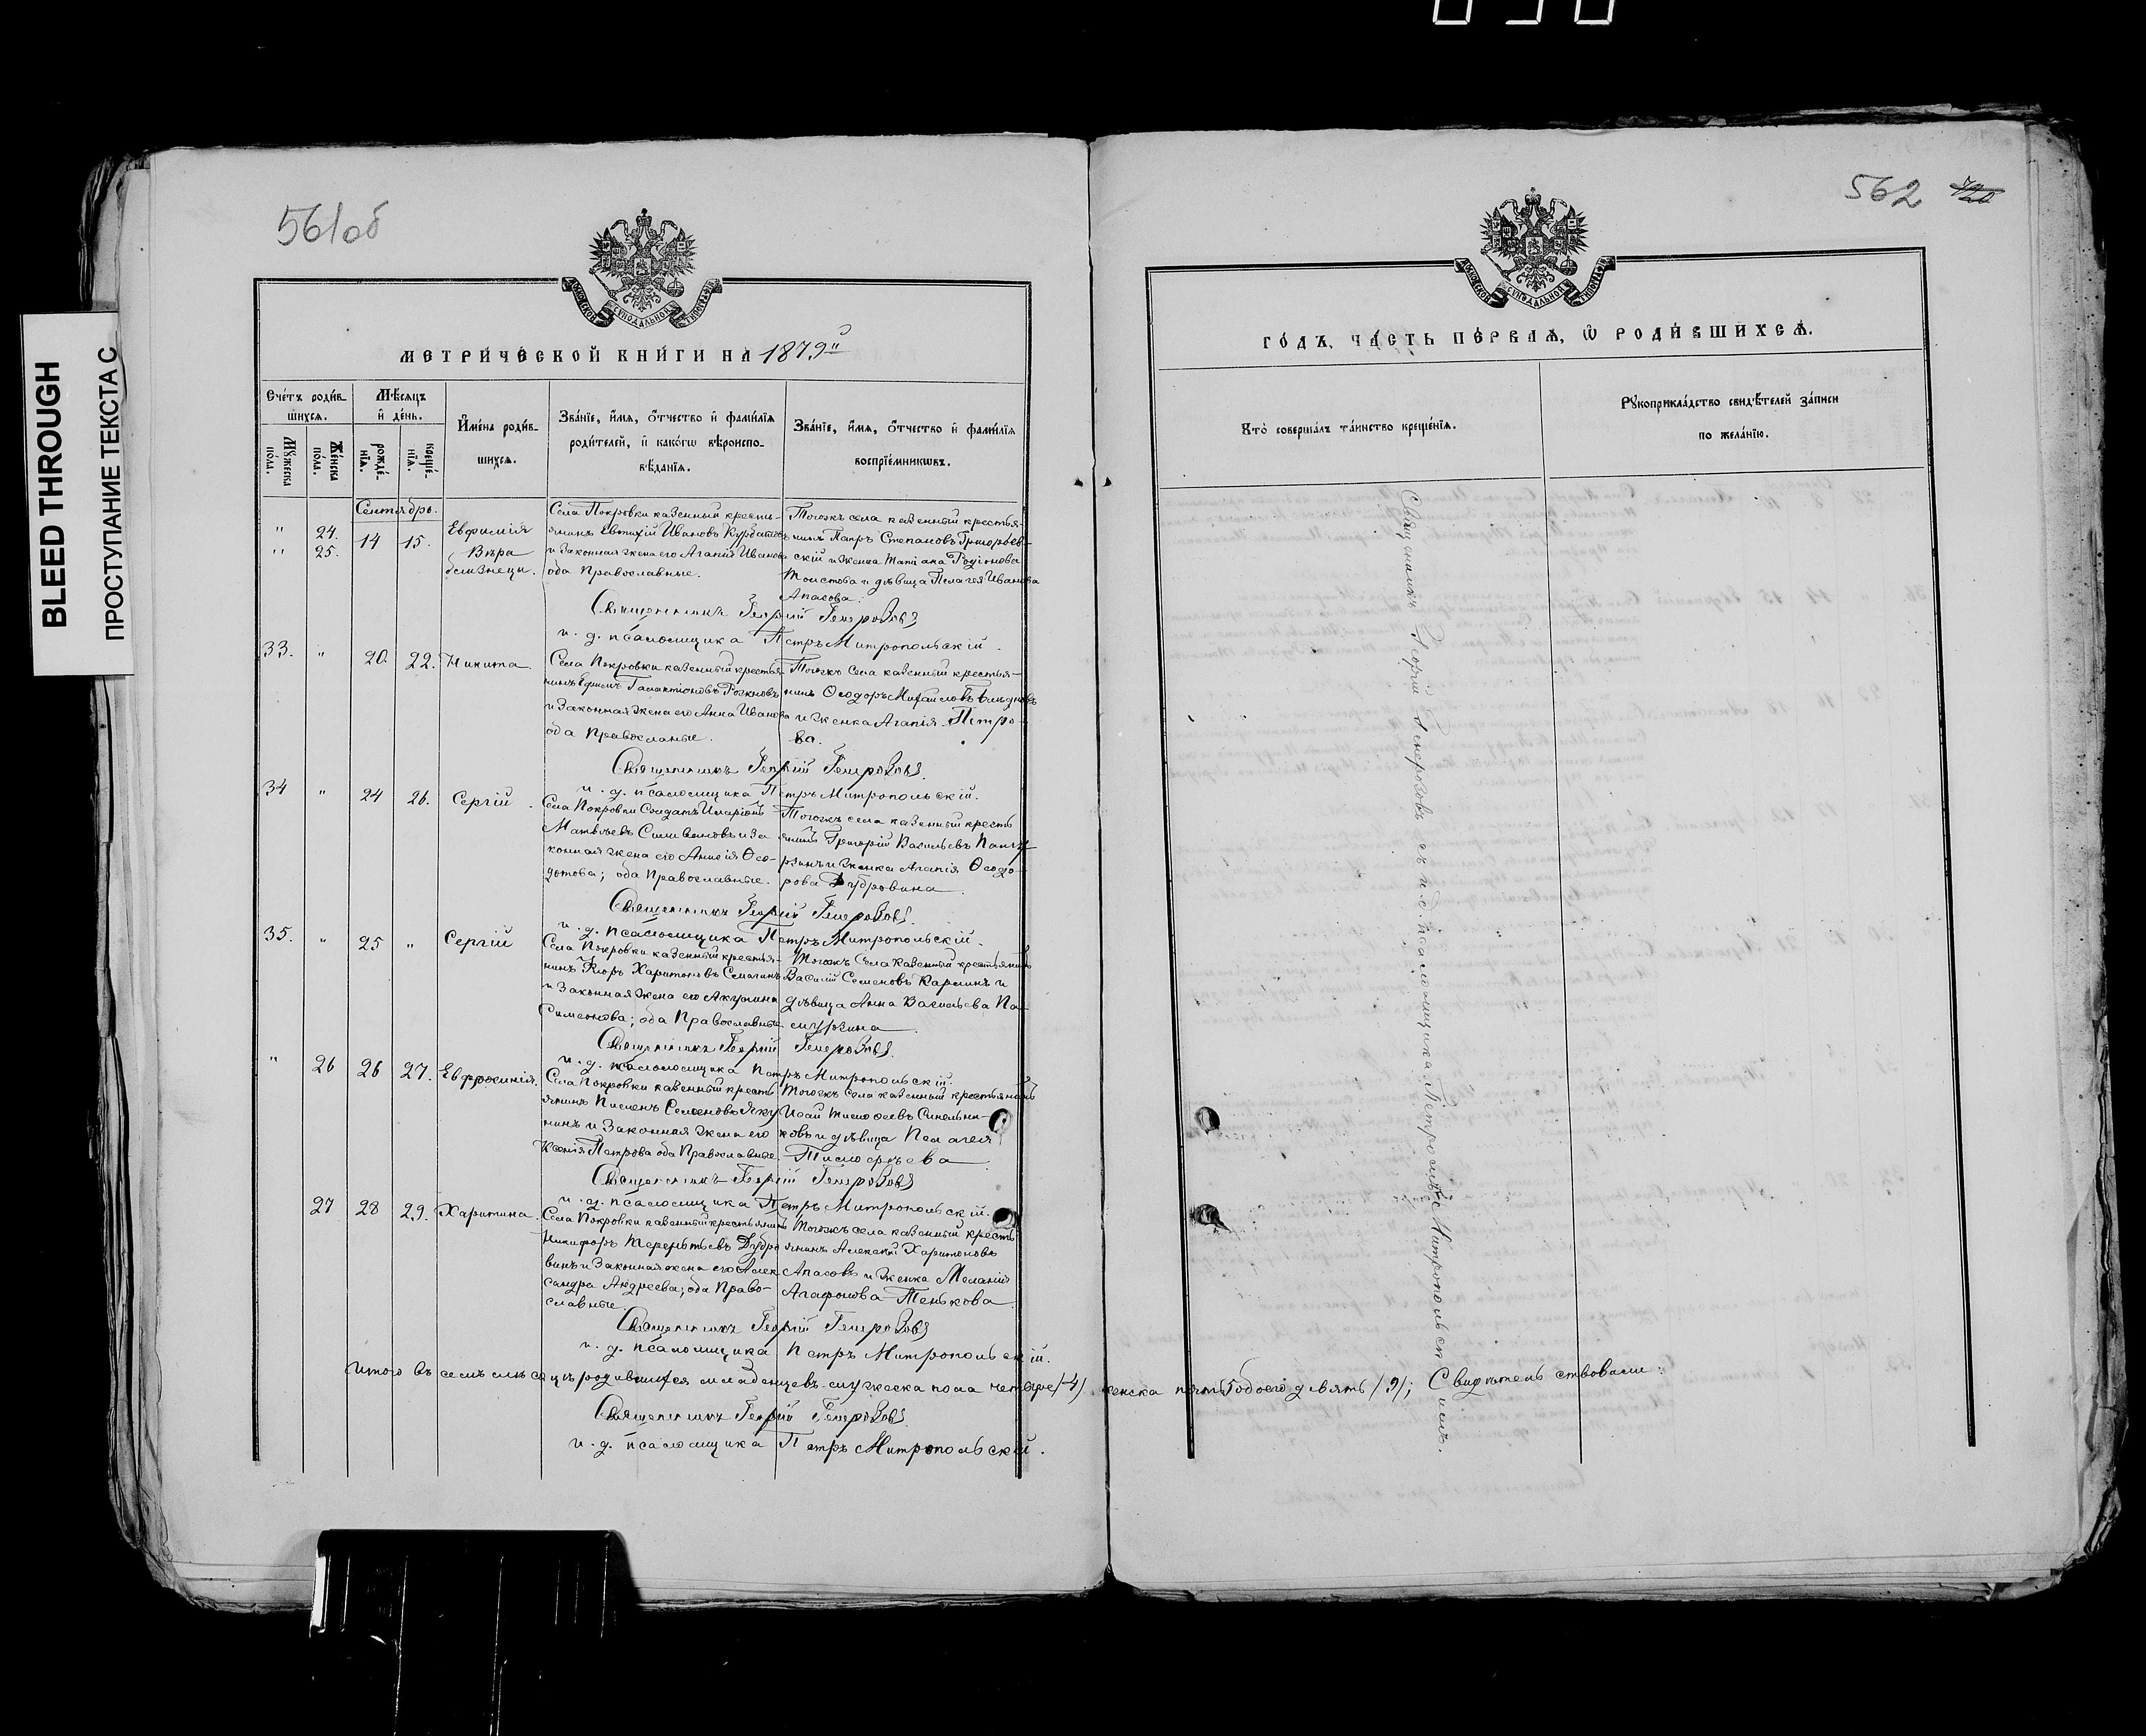 BLEED THROUGH
ПРОСТУПАНИЕ ТЕКСТА С
561об
МОСКОВСКОЙ СѴНОДАЛЬНОЙ ТИПОГРАФІИ
МЕТРИЧЕСКОЙ КНИГИ НА 1879й
Счетъ родившихся.
Мѣсяцъ и день.
Мужеска пола.
Женска пола.
рожденія.
крещенія.
Имена родившихся.
Званіе, имя, отчество и фамилія родителей, и какогѡ вѣроисповѣданія.
Званіе, имя, отчество и фамилія воспріемникѡвъ.
Сентябрь.
" 24.
" 25.
14 15.
Евфимія
Вѣра
близнецы.
Села Покровки казенный кресть-
янинъ Евтихій Ивановъ Курбатовъ
и законная жена его Агапія Иванова
оба Православные.
Тогожъ села казенный крестья-
нинъ Петръ Степановъ Григорьев-
скій и женка Татіана Родіонова
Толстова и дѣвица Пелагея Иванова
Апасова.
Священникъ Георгій Генерозовъ
и. д. псаломщика Петръ Митропольскій.
33. " 20. 22. Никита
Села Покровки казенный крестья-
нинъ Ефимъ Галактіоновъ
и законная жена его Анна Иванова
оба Православные.
Тогожъ села казенный крестья-
нинъ Ѳеодоръ Михайловъ
и женка Агапія Петро-
ва.
Священникъ Георгій Генерозовъ
и. д. псаломщика Петръ Митропольскій.
34 " 24 26. Сергій
Села Покровки Солдатъ Иларіонъ
Матвѣевъ Селивановъ и за-
конная жена его Анисія Ѳео-
дотова; оба Православные.
Тогожъ села казенный кресть
янинъ Григорій Васильевъ
и женка Агапія Ѳеодо-
рова Дубровина.
Священникъ Георгій Генерозовъ
и. д. псаломщика Петръ Митропольскій.
35. " 25 " Сергій
Села Покровки казенный крестья-
нинъ Харитоновъ
и законная жена его Акулина
Симеонова; оба Православные.
Тогожъ села казенный крестьянинъ
Василій Семеновъ Карпинъ и
дѣвица Анна Васильева
Священникъ Георгій Генерозовъ
и. д. псаломщика Петръ Митропольскій.
" 26 26 27. Евфросинія.
Села Покровки казенный кресть
янинъ Пименъ Семеновъ
и законная жена его
Ксенія Петрова оба Православные.
Тогожъ села казенный крестьянинъ
Исай Тимоѳеевъ Синельни-
ковъ и дѣвица Пелагея
Тимоѳеева
Священникъ Георгій Генерозовъ
и. д. псаломщика Петръ Митропольскій.
27 28 29. Харитина.
Села Покровки казенный крестьянинъ
Никифоръ Терентьевъ Дубро
винъ и законная жена его Алек
сандра Андреева; оба Право-
славные.
Тогожъ села казенный кресть
янинъ Алексѣй Харитоновъ
Апасовъ и женка Меланія
Агафонова Тенькова.
Священникъ Георгій Генерозовъ
и. д. псаломщика Петръ Митропольскій.
Итого въ семъ мѣсяцѣ родившихся младенцевъ мужеска пола четыре /4/ женска обоего девять /9/; Свидѣтельствовали:
Священникъ Георгій Генерозовъ
и. д. псаломщика Петръ Митропольскій.
562
МОСКОВСКОЙ СѴНОДАЛЬНОЙ ТИПОГРАФІИ
ГОДЪ, ЧАСТЬ ПЕРВАЯ, Ѡ РОДИВШИХСЯ.
Кто совершалъ таинство крещенія.
Рукоприкладство свидѣтелей записи по желанію.
Священникъ Георгій Генерозовъ съ и. д. псаломщика Петромъ Митропольскимъ.